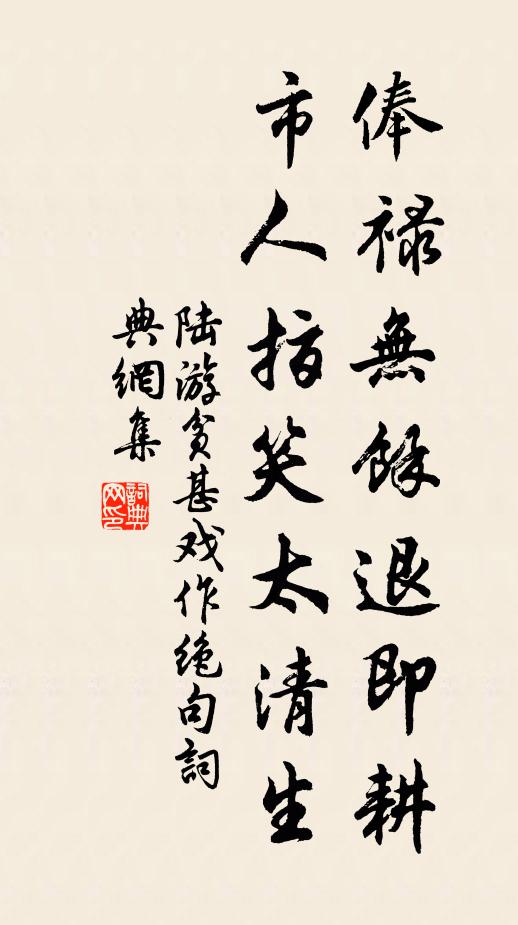 俸禄無餘退即耕
市人指笑太清生
陆游贫甚戏作绝句詞
典網集
詞典網印